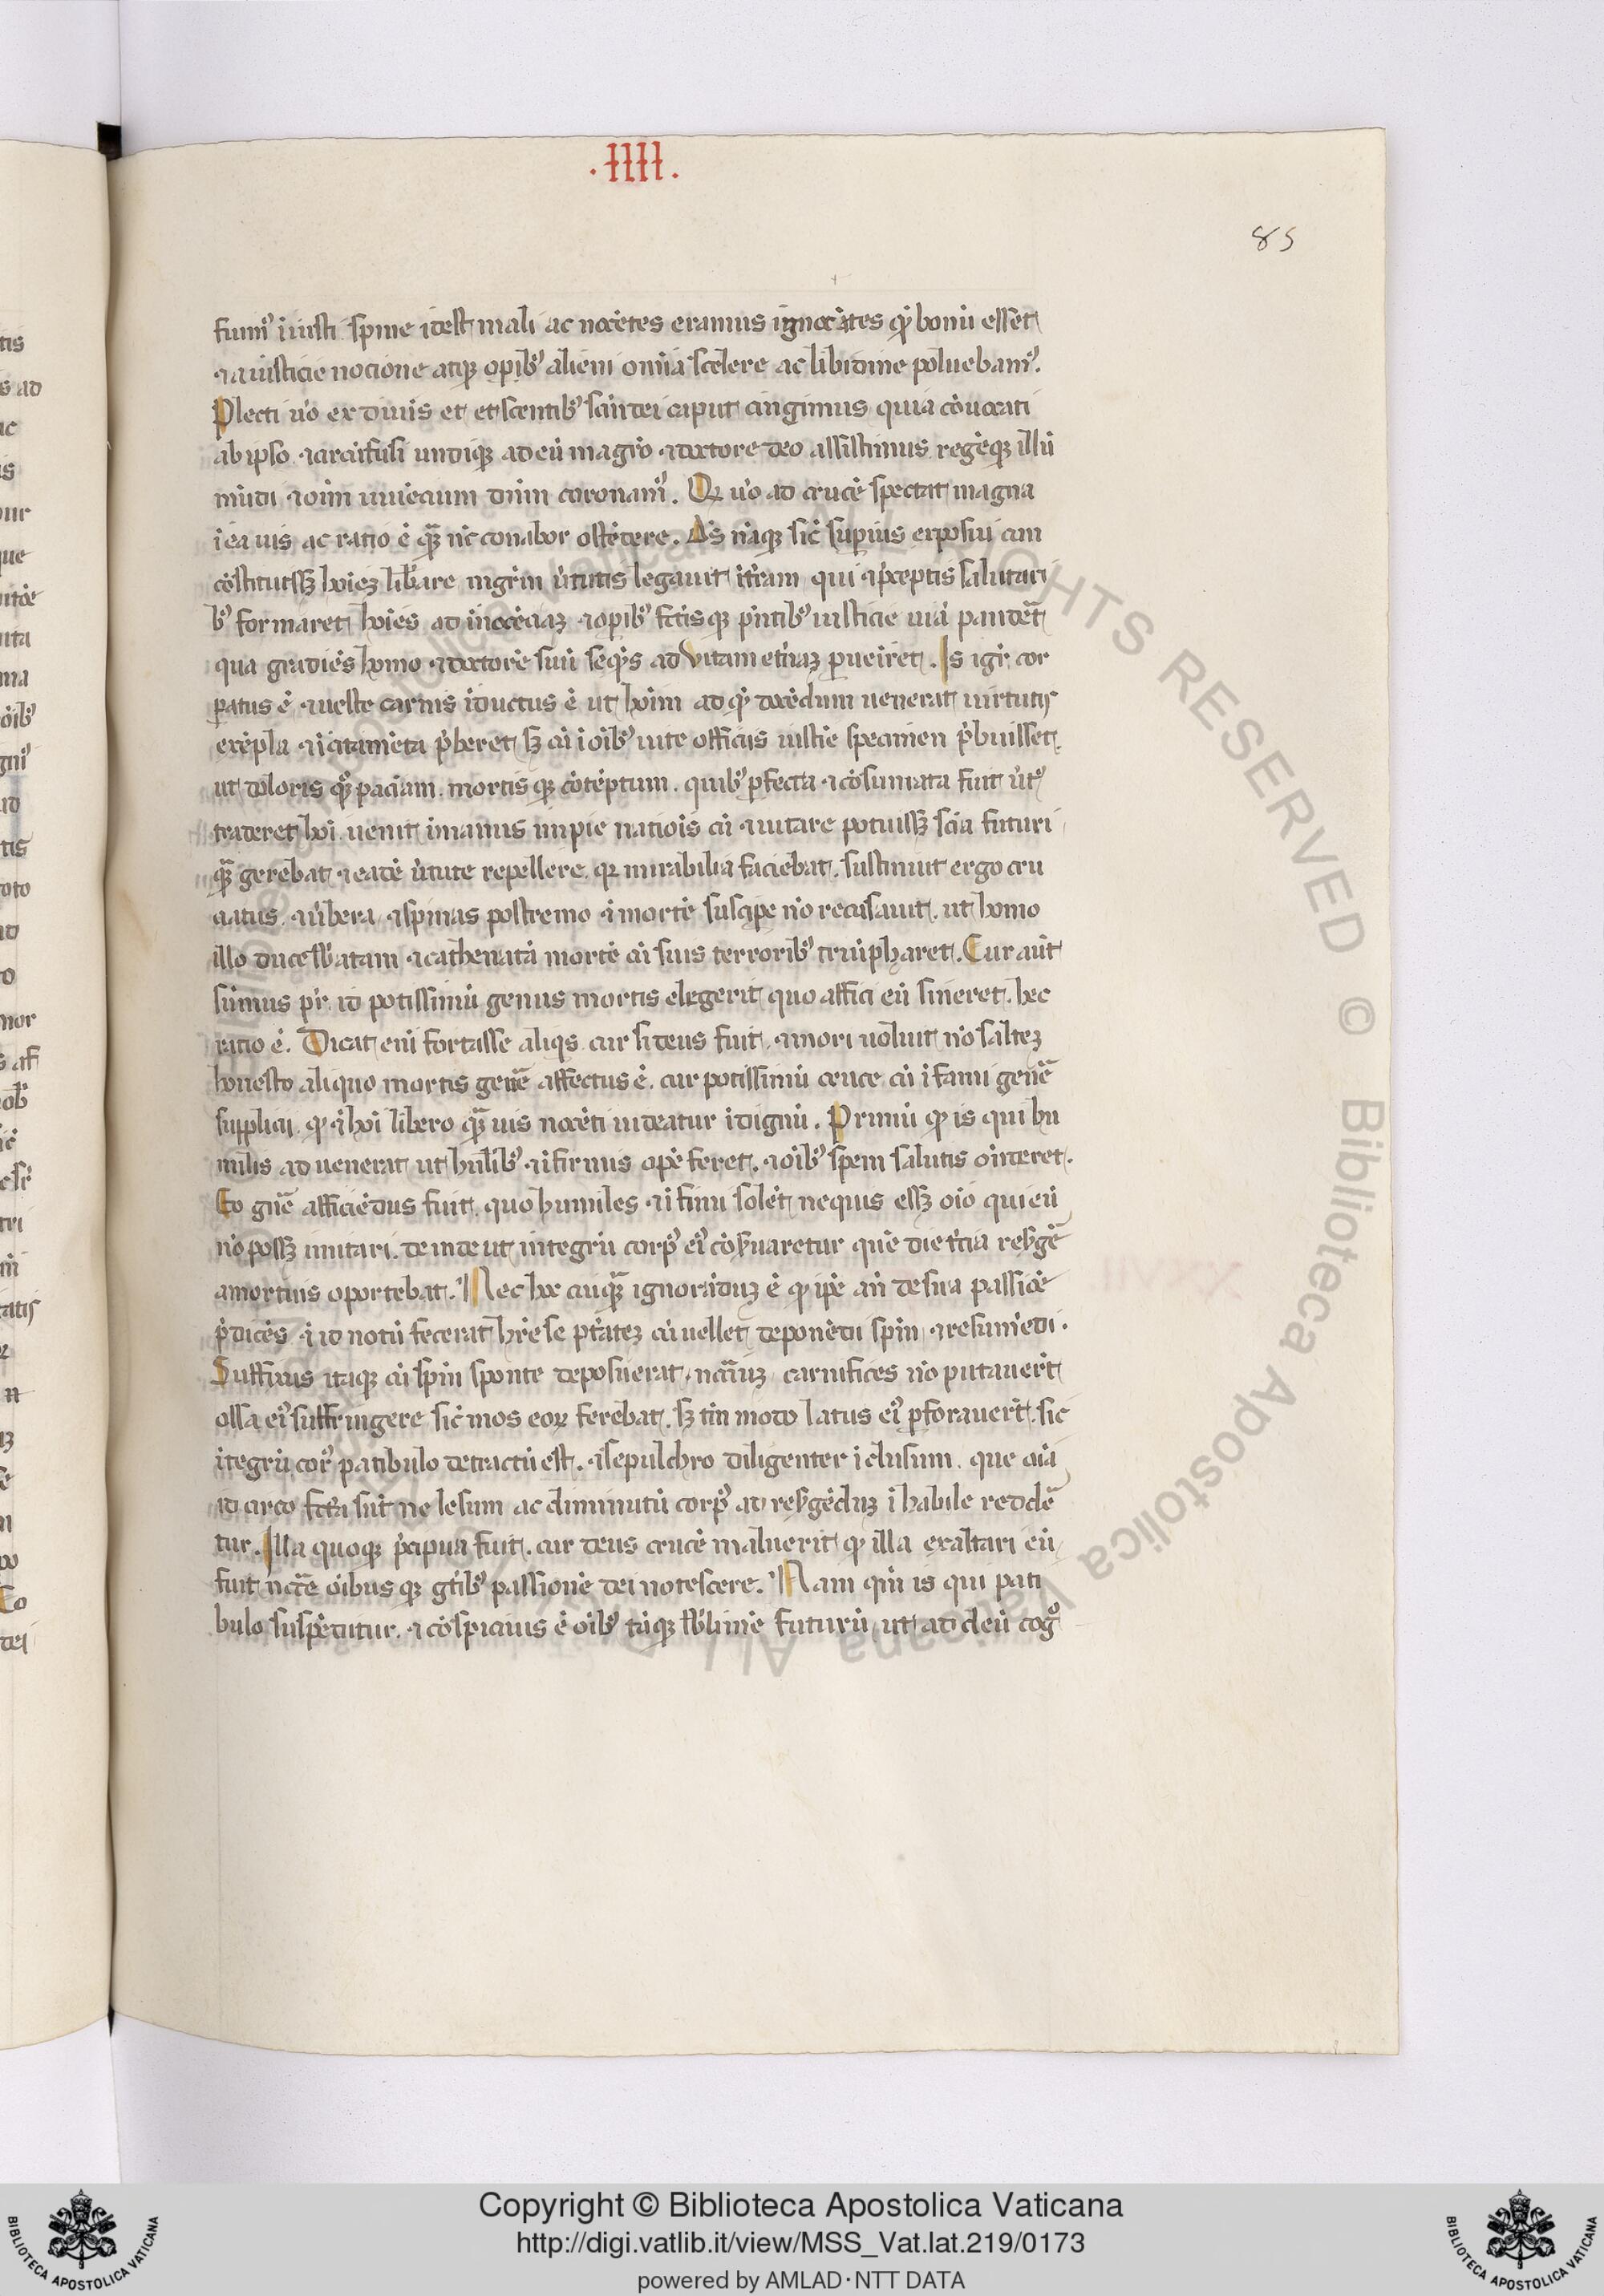 .IIII.
85
fuim᷒ iı̄usti spine idest mali ac nocētes eramus ignorātes qͥ bonū esset
⁊ a iusticie nocione atqꝫ opib᷒ alieni om̄ia scelere ac libidine poluebam᷒.
Plecti u̇o ex dumis et et sentib᷒ sc̄m dei caput cingimus quia cōuocati
ab ipso ⁊ circūfusi undiqꝫ ad eū magr̄o ⁊ doctore deo assistimus regēqꝫ illū
mūdi ⁊ oīm uiuēcium dn̄m coronam᷒. Qꝫ u̇o ad crucē spectat magna
ī ea uis ac ratio ē quā nc̄ conabor ostēdere. Ds̄ nāqꝫ sic̄ supius exposui cum
cōstituissꝫ hoīeꝫ lib̄are mgr̄m u̇tutis legauit ī tr̄am qui ⁊ p̄ceptis salutari
b᷒ formaret hoīes ad inocēciaꝫ ⁊ opib᷒ fc̄tisqꝫ p̄ntib᷒ iusticie uiā pandet̄
qua gradiēs homo ⁊ doctorē suū seqns̄ ad vitam etn̄aꝫ pueniret. Is igr̄ cor
patus ē ⁊ ueste carnis īductus ē ut hoīm ad qͥ docēdum uenerat uirtutis
exēpla ⁊ īcitamēta p̄beret sꝫ cū ī oīb᷒ uite officiis iusticie specimen p̄buisset.
ut doloris qͦꝫ paciam. mortisqꝫ cōtēptum. quib᷒ pfecta ⁊ cōsumata fuit u̇t᷒
traderet hoī. uenit ī manus impie natiois cū ⁊ uitare potuissꝫ scīa futuri
quā gerebat ⁊ eadē u̇tute repellere. qꝫ mirabilia faciebat. sustinuit ergo cru
ciatus ⁊ u̇bera ⁊ spinas postremo ⁊ mortē suscipe nō recusauit. ut homo
illo duce sb̄atam ⁊ cathenatā mortē cū suis terrorib᷒ triūpharet. Cur aūt
sūmus pr̄ id potissimū genus mortis elegerit quo affici eū sineret. hec
ratio ē. Dicat enī fortasse aliqs cur si deus fuit ⁊ mori uoluit nō salteꝫ
honesto aliquo mortis genē affectus ē. cur potissimū cruce cū ī fami genē
supplicii. qͥ ⁊ hoī libero quāuis nocēti uideatur īdignū. Primū qͥ is qui hu
milis aduenerat ut humlib᷒ ⁊ īfirmis opē feret. ⁊ oīb᷒ spem salutis onderet.
Eo gnē afficiēdus fuit. quo humiles ⁊ ī fimi solēt nequis essꝫ oīo qui eū
nō possꝫ imitari. deinde ut integrū corp᷒ ei᷒ cōs̄uaretur quē die t̄cia res̄gē
a mortuis oportebat. Nec hoc cuiquā ignorāduꝫ ē qͥ ipē an̄ de sua passiōe
p̄dicēs ⁊ id notū fecerat hr̄e se ptāteꝫ cū uellet deponēdi spm̄ ⁊ resumēdi.
Suffixus itaqꝫ cū spm̄ sponte deposuerat. nc̄cariuꝫ carnifices nō putauerūt
ossa ei᷒ suffringere sic̄ mos eoꝝ ferebat. sꝫ tm̄ modo latus ei᷒ pforauerūt. sic
ītegrū cor᷒ patibulo detractū est. ⁊ sepulchro diligenter ī clusum. que oīa
id circo fc̄ta sūt ne lesum ac diminutū corp᷒ ad res̄gēduꝫ ī habile reddē
tur. Illa quoqꝫ p̄cipua fuit. cur deus crucē maluerit qͥ illa exaltari eū
fuit nc̄ce oībusqꝫ gn̄tib᷒ passionē dei notescere. Nam qm̄ is qui pati
bulo suspēditur. ⁊ cōspicuus ē oīb᷒ cūqꝫ sb̄limē futurū ut ad deū cog᷒
Copyright © Biblioteca Apostolica Vaticana
http://digi.vatlib.it/view/MSS_Vat.lat.219/0173
powered by AMLAD·NTT DATA